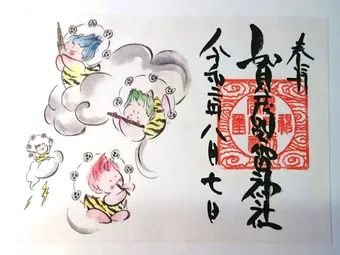 奉拝
賀茂別雷神社
令和二年八月七日